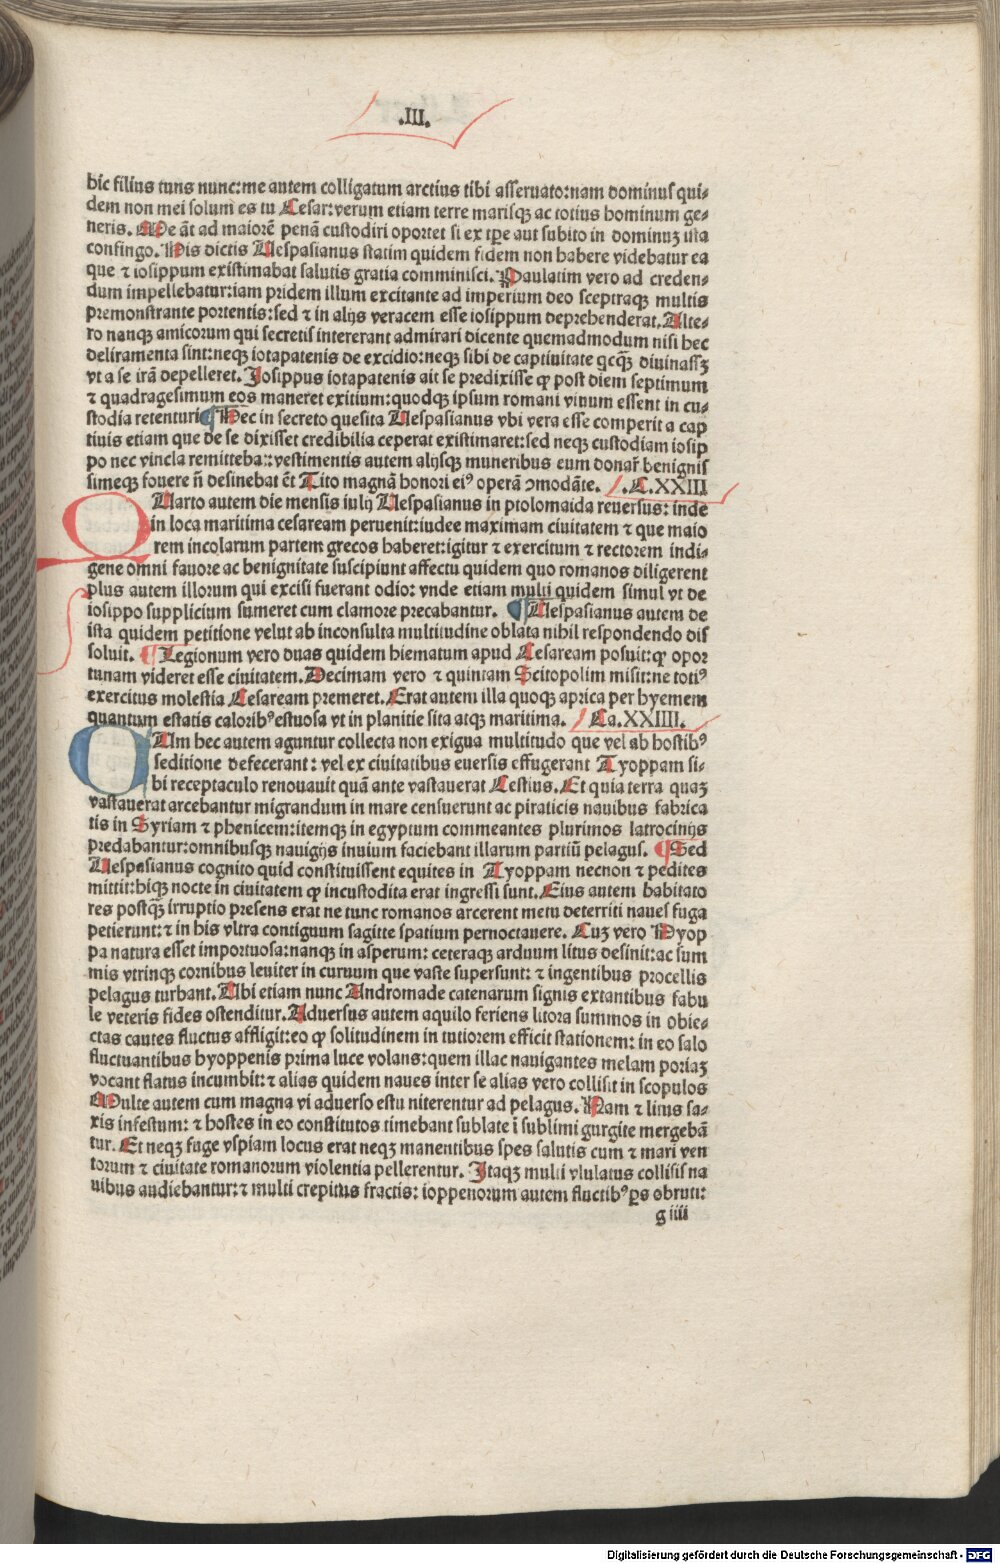 .III.
hic filius tuus nunc:me autem colligatum arctius tibi asseruato:nam dominus qui-
dem non mei solum es tu Cesar:verum etiam terre marisqꝫ ac totius hominum ge-
neris. Me āt ad maiorē penā custodiri oportet si ex tꝑe aut subito in dominuꝫ ista
confingo. His dictis Uespasianus statim quidem fidem non habere videbatur ea
que ⁊ iosippum existimabat salutis gratia comminisci. Paulatim vero ad creden-
dum impellebatur:iam pridem illum excitante ad imperium deo sceptraqꝫ multis
premonstrante portentis:sed ⁊ in alijs veracem esse iosippum deprehenderat. Alte-
ro nanqꝫ amicorum qui secretis intererant admirari dicente quemadmodum nisi hec
deliramenta sint:neqꝫ iotapatenis de excidio:neqꝫ sibi de captiuitate qcqꝫ̄ diuinassꝫ
vt a se irā depelleret. Josippus iotapatenis ait se predixisse ꝙ post diem septimum
⁊ quadragesimum eos maneret exitium:quodqꝫ ipsum romani viuum essent in cu-
stodia retenturi ¶ Hec in secreto quesita Uespasianus vbi vera esse comperit a cap
tiuis etiam que de se dixisset credibilia ceperat existimaret:sed neqꝫ custodiam iosip
po nec vincla remitteba::vestimentis autem alijsqꝫ muneribus eum donar̄ benignis
simeqꝫ fouere n̄ desinebat ēt Tito magnā honori eiꝰ operā ↄmodāte. .C.XXIII
QUarto autem die mensis iulij Uespasianus in ptolomaida reuersus: inde
in loca maritima cesaream peruenit:iudee maximam ciuitatem ⁊ que maio
rem incolarum partem grecos haberet:igitur ⁊ exercitum ⁊ rectorem indi-
gene omni fauore ac benignitate suscipiunt affectu quidem quo romanos diligerent
plus autem illorum qui excisi fuerant odio: vnde etiam multi quidem simul vt de
iosippo supplicium sumeret cum clamore precabantur. ¶ Uespasianus autem de
ista quidem petitione velut ab inconsulta multitudine oblata nihil respondendo dis
soluit. ¶ Legionum vero duas quidem hiematum apud Cesaream posuit:ꝙ opor
tunam videret esse ciuitatem. Decimam vero ⁊ quintam Scitopolim misit:ne totiꝰ
exercitus molestia Cesaream premeret. Erat autem illa quoqꝫ aprica per hyemem
quantum estatis caloribꝰ estuosa vt in planitie sita atqꝫ maritima. Ca.XXIIII.
CUm hec autem aguntur collecta non exigua multitudo que vel ab hostibꝰ
seditione defecerant: vel ex ciuitatibus euersis effugerant Iyoppam si-
bi receptaculo renouauit quā ante vastauerat Cestius. Et quia terra quaꝫ
vastauerat arcebantur migrandum in mare censuerunt ac piraticis nauibus fabrica
tis in Syriam ⁊ phenicem:itemqꝫ in egyptum commeantes plurimos latrocinijs
predabantur:omnibusqꝫ nauigijs inuium faciebant illarum partiū pelagus. ¶ Sed
Uespesianus cognito quid constituissent equites in Iyoppam necnon ⁊ pedites
mittit:hiqꝫ nocte in ciuitatem ꝙ incustodita erat ingressi sunt. Eius autem habitato
res postqꝫ̄ irruptio presens erat ne tunc romanos arcerent metu deterriti naues fuga
petierunt:⁊ in his vltra contiguum sagitte spatium pernoctauere. Cuꝫ vero Hyop
pa natura esset importuosa:nanqꝫ in asperum: ceteraqꝫ arduum litus desinit:ac sum
mis vtrinqꝫ cornibus leuiter in curuum que vaste supersunt: ⁊ ingentibus procellis
pelagus turbant. Ubi etiam nunc Andromade catenarum signis extantibus fabu
le veteris fides ostenditur. Aduersus autem aquilo feriens litora summos in obie-
ctas cautes fluctus affligit:eo ꝙ solitudinem in tutiorem efficit stationem: in eo salo
fluctuantibus hyoppenis prima luce volans:quem illac nauigantes melam poriaꝫ
vocant flatus incumbit:⁊ alias quidem naues inter se alias vero collisit in scopulos
Multe autem cum magna vi aduerso estu niterentur ad pelagus. Nam ⁊ litus sa-
xis infestum: ⁊ hostes in eo constitutos timebant sublate ī sublimi gurgite mergebā
tur. Et neqꝫ fuge vspiam locus erat neqꝫ manentibus spes salutis cum ⁊ mari ven
torum ⁊ ciuitate romanorum violentia pellerentur. Itaqꝫ multi vlulatus collisis na
uibus audiebantur:⁊ multi crepitus fractis: ioppenorum autem fluctibꝰ ꝑs obruti:
g iiii
Digitalisierung gefördert durch die Deutsche Forschungsgemeinschaft - DFG